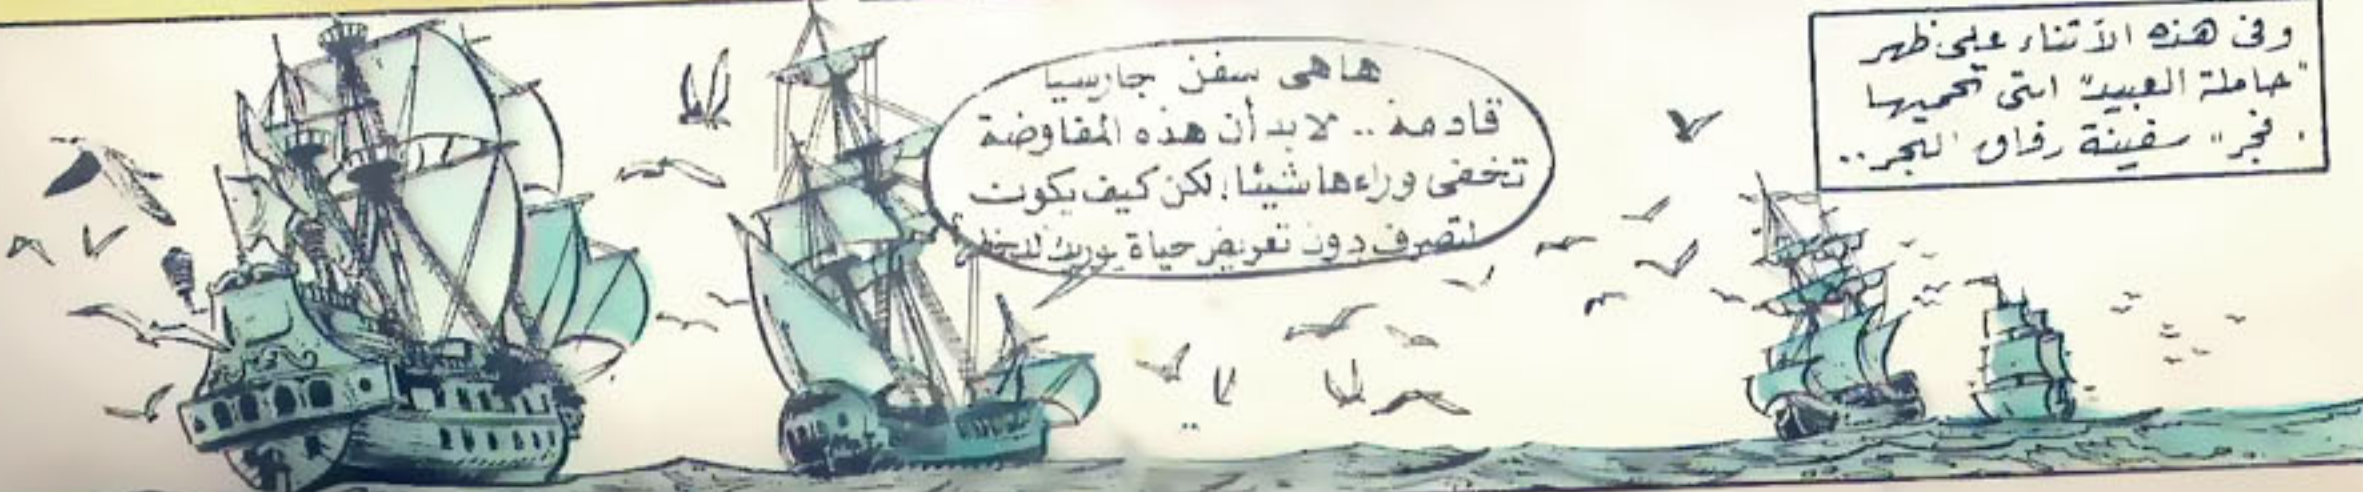 وفى هذه الأثناء على ظهر
"حاملة العبيد" التى تحميها
"فجر" سفينة رفاق البحر..
ها هى سفن جارسيا
قادمة.. لابد أن هذه المفاوضة
تخفى وراءها شيئا! لكن كيف يكون
التصرف دون تعريض حياة يوريك للخطر